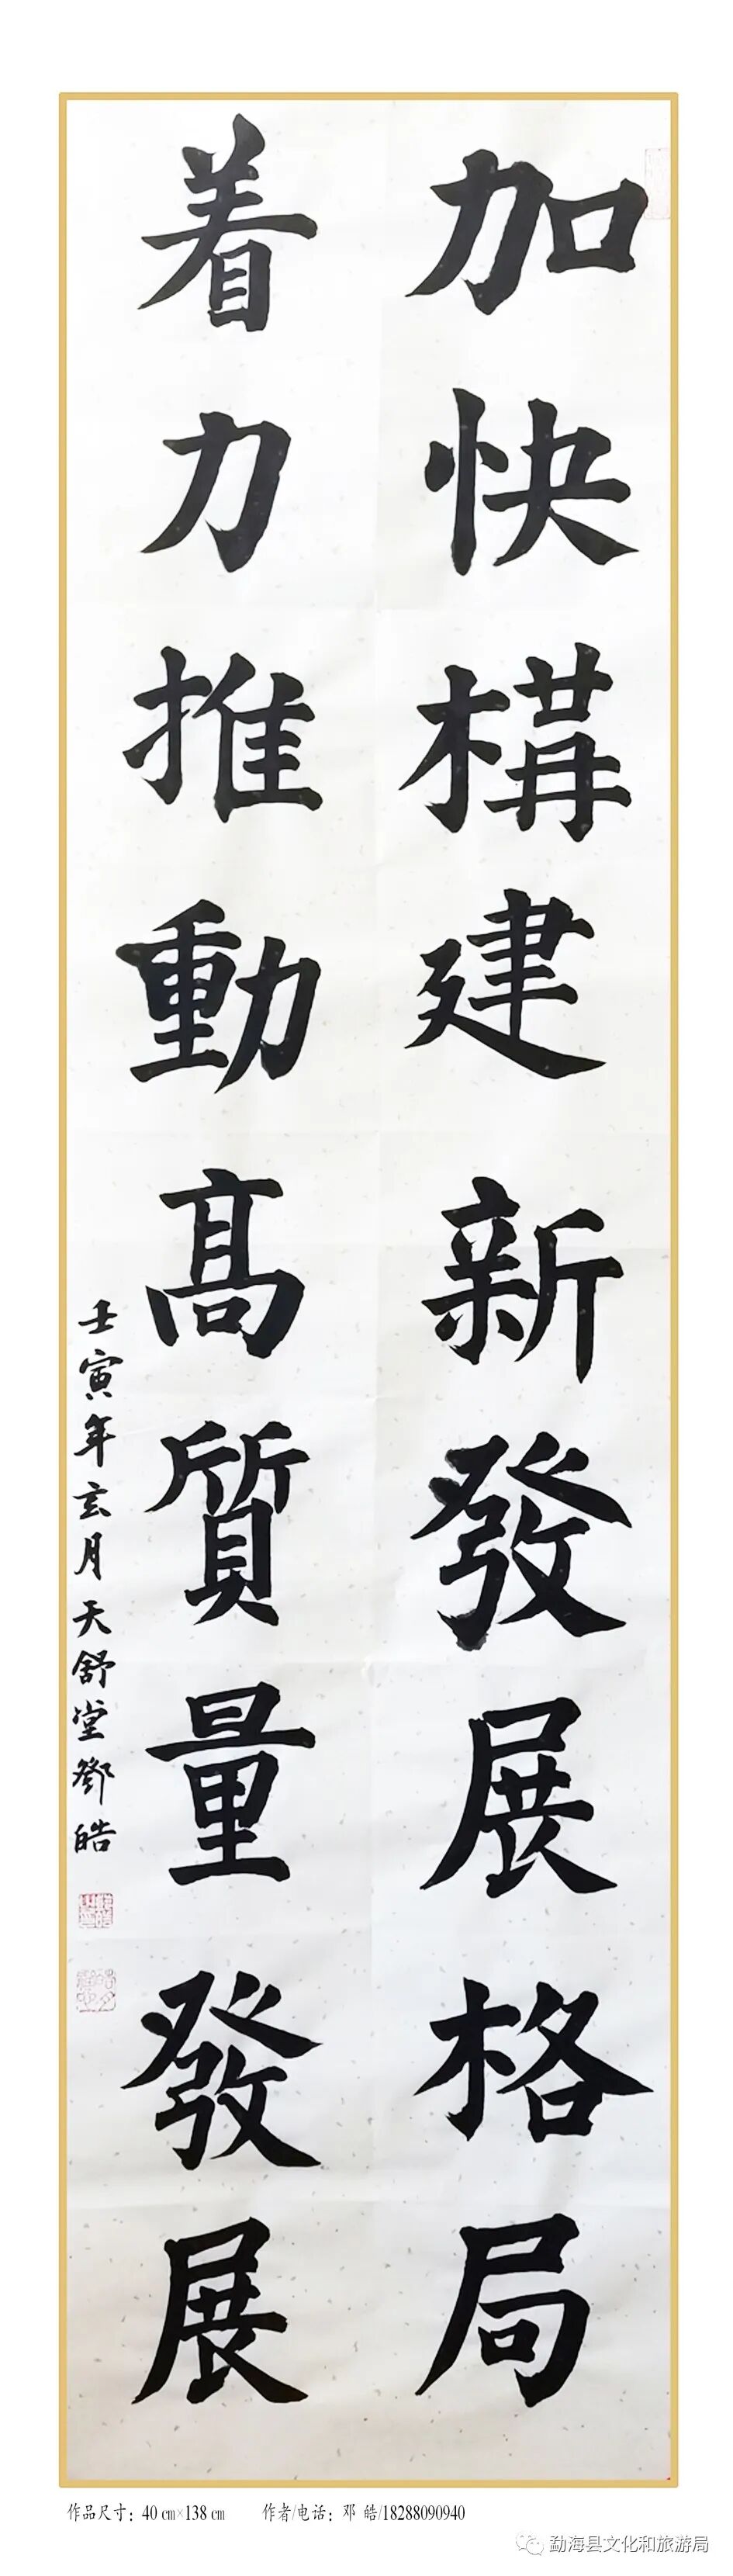 加快構建新發展格局
着力推動高質量發展
壬寅年亥月天舒堂鄧皓
作品尺寸：40 cm×138 cm 作者/电话：邓 皓/18288090940
勐海县文化和旅游局